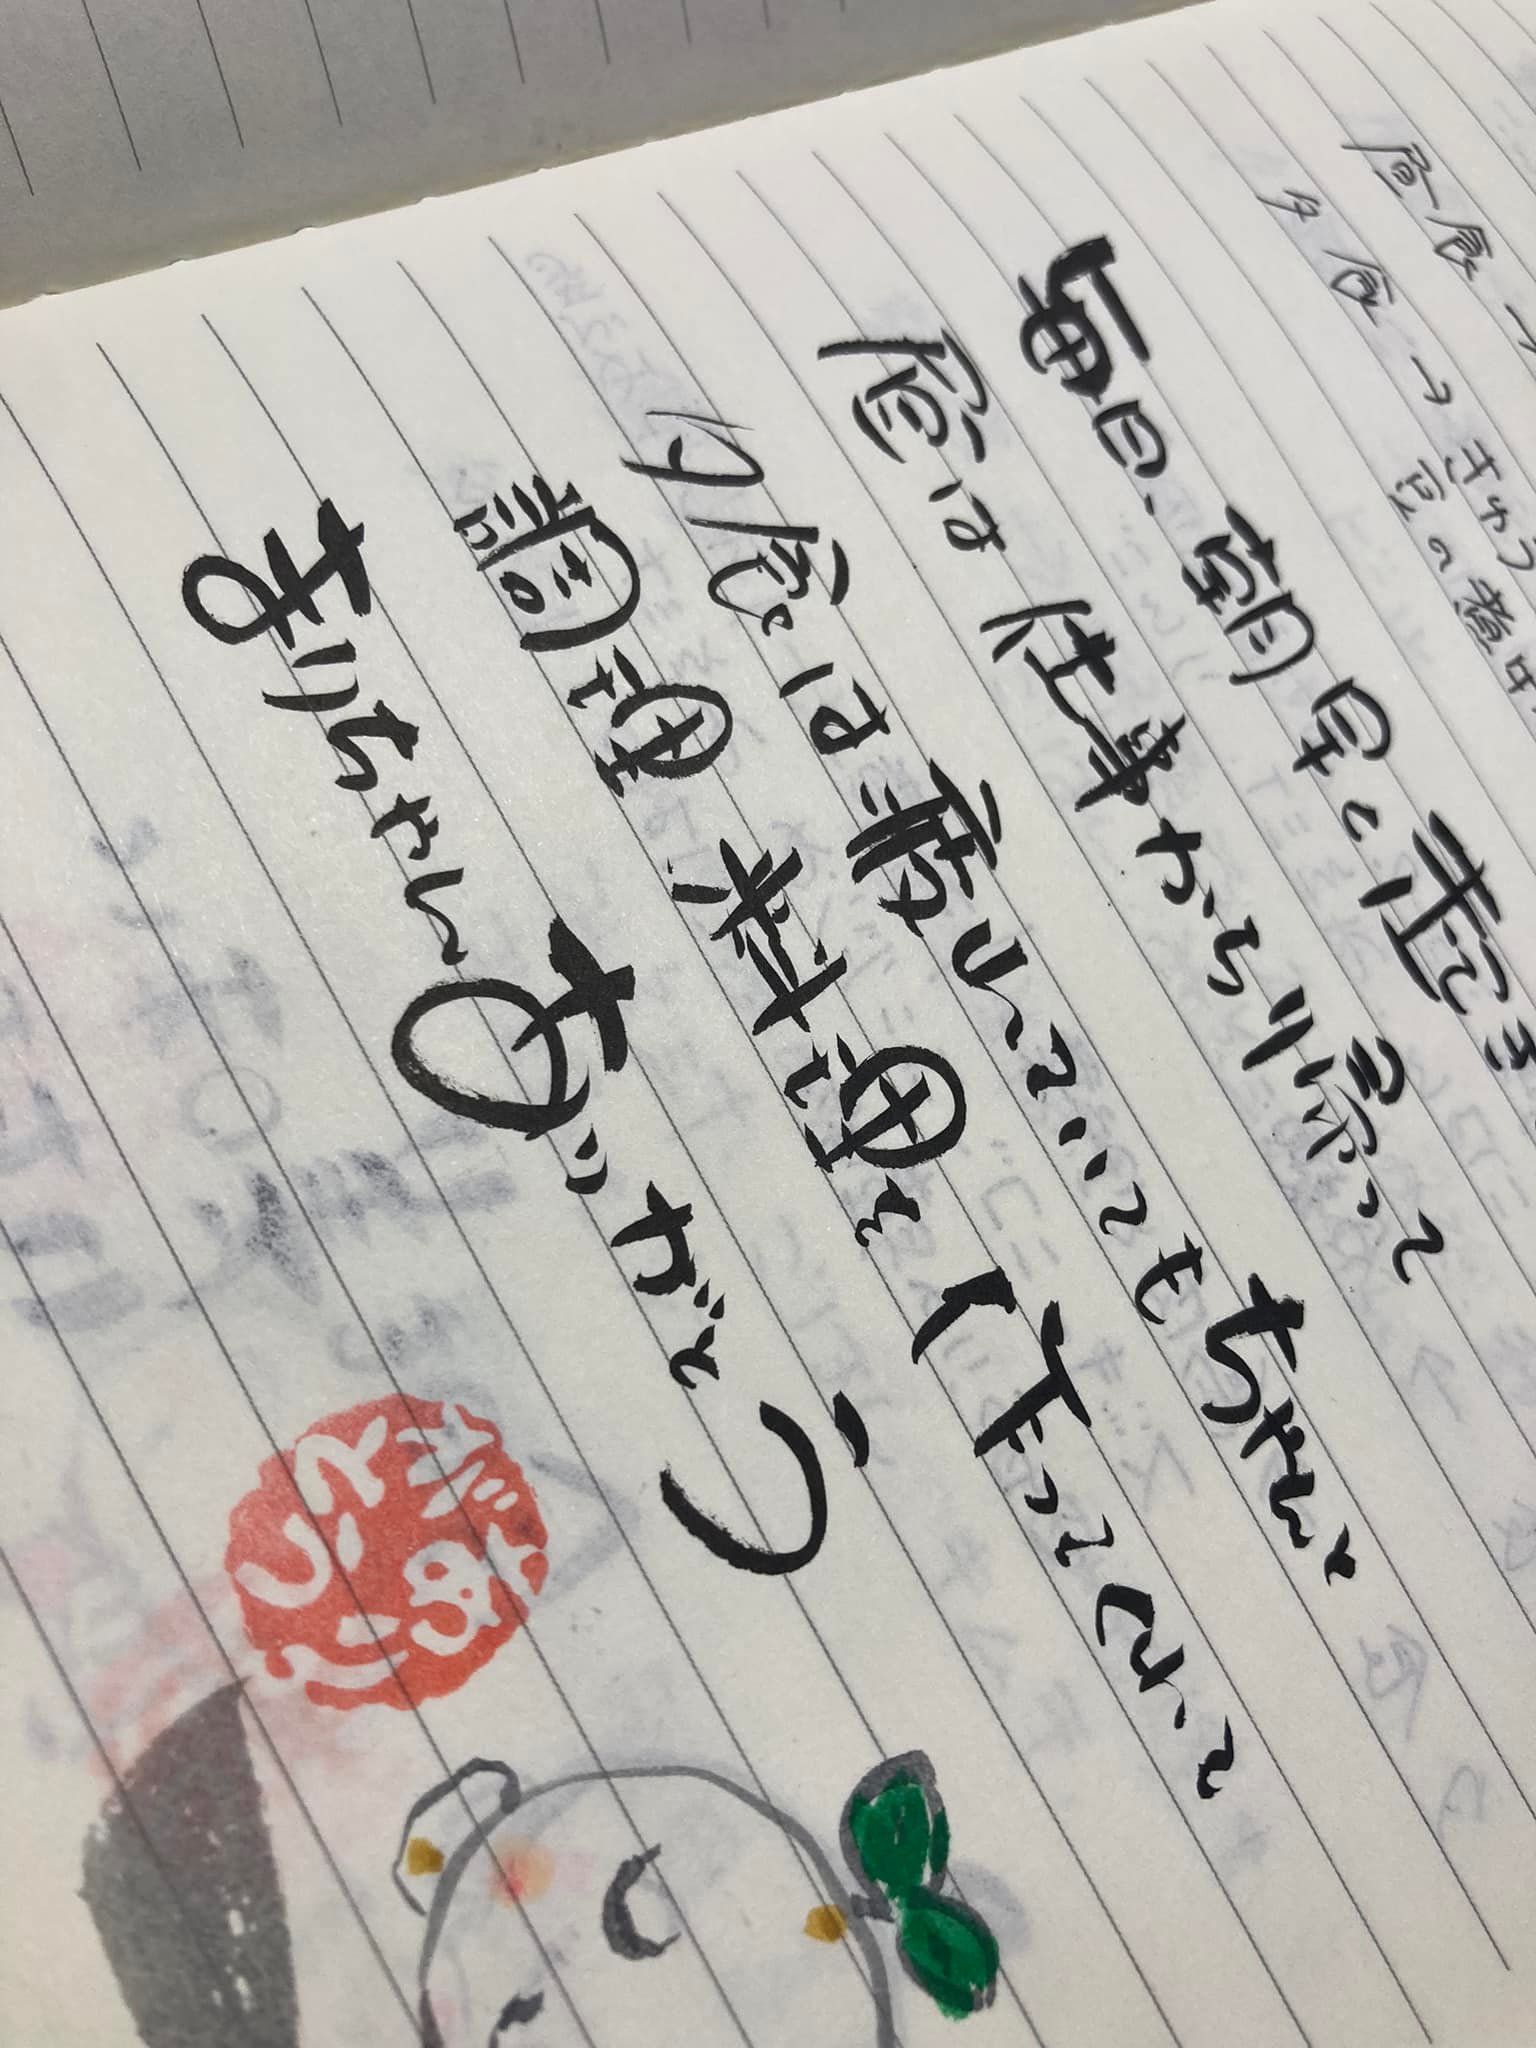 昼食→
夕食→きゅう
豆の煮
毎日、朝早く起き
昼は仕事から帰って
夕食は疲れていてもちゃんと
調理料理を作ってくれて
まりちゃんありがとう